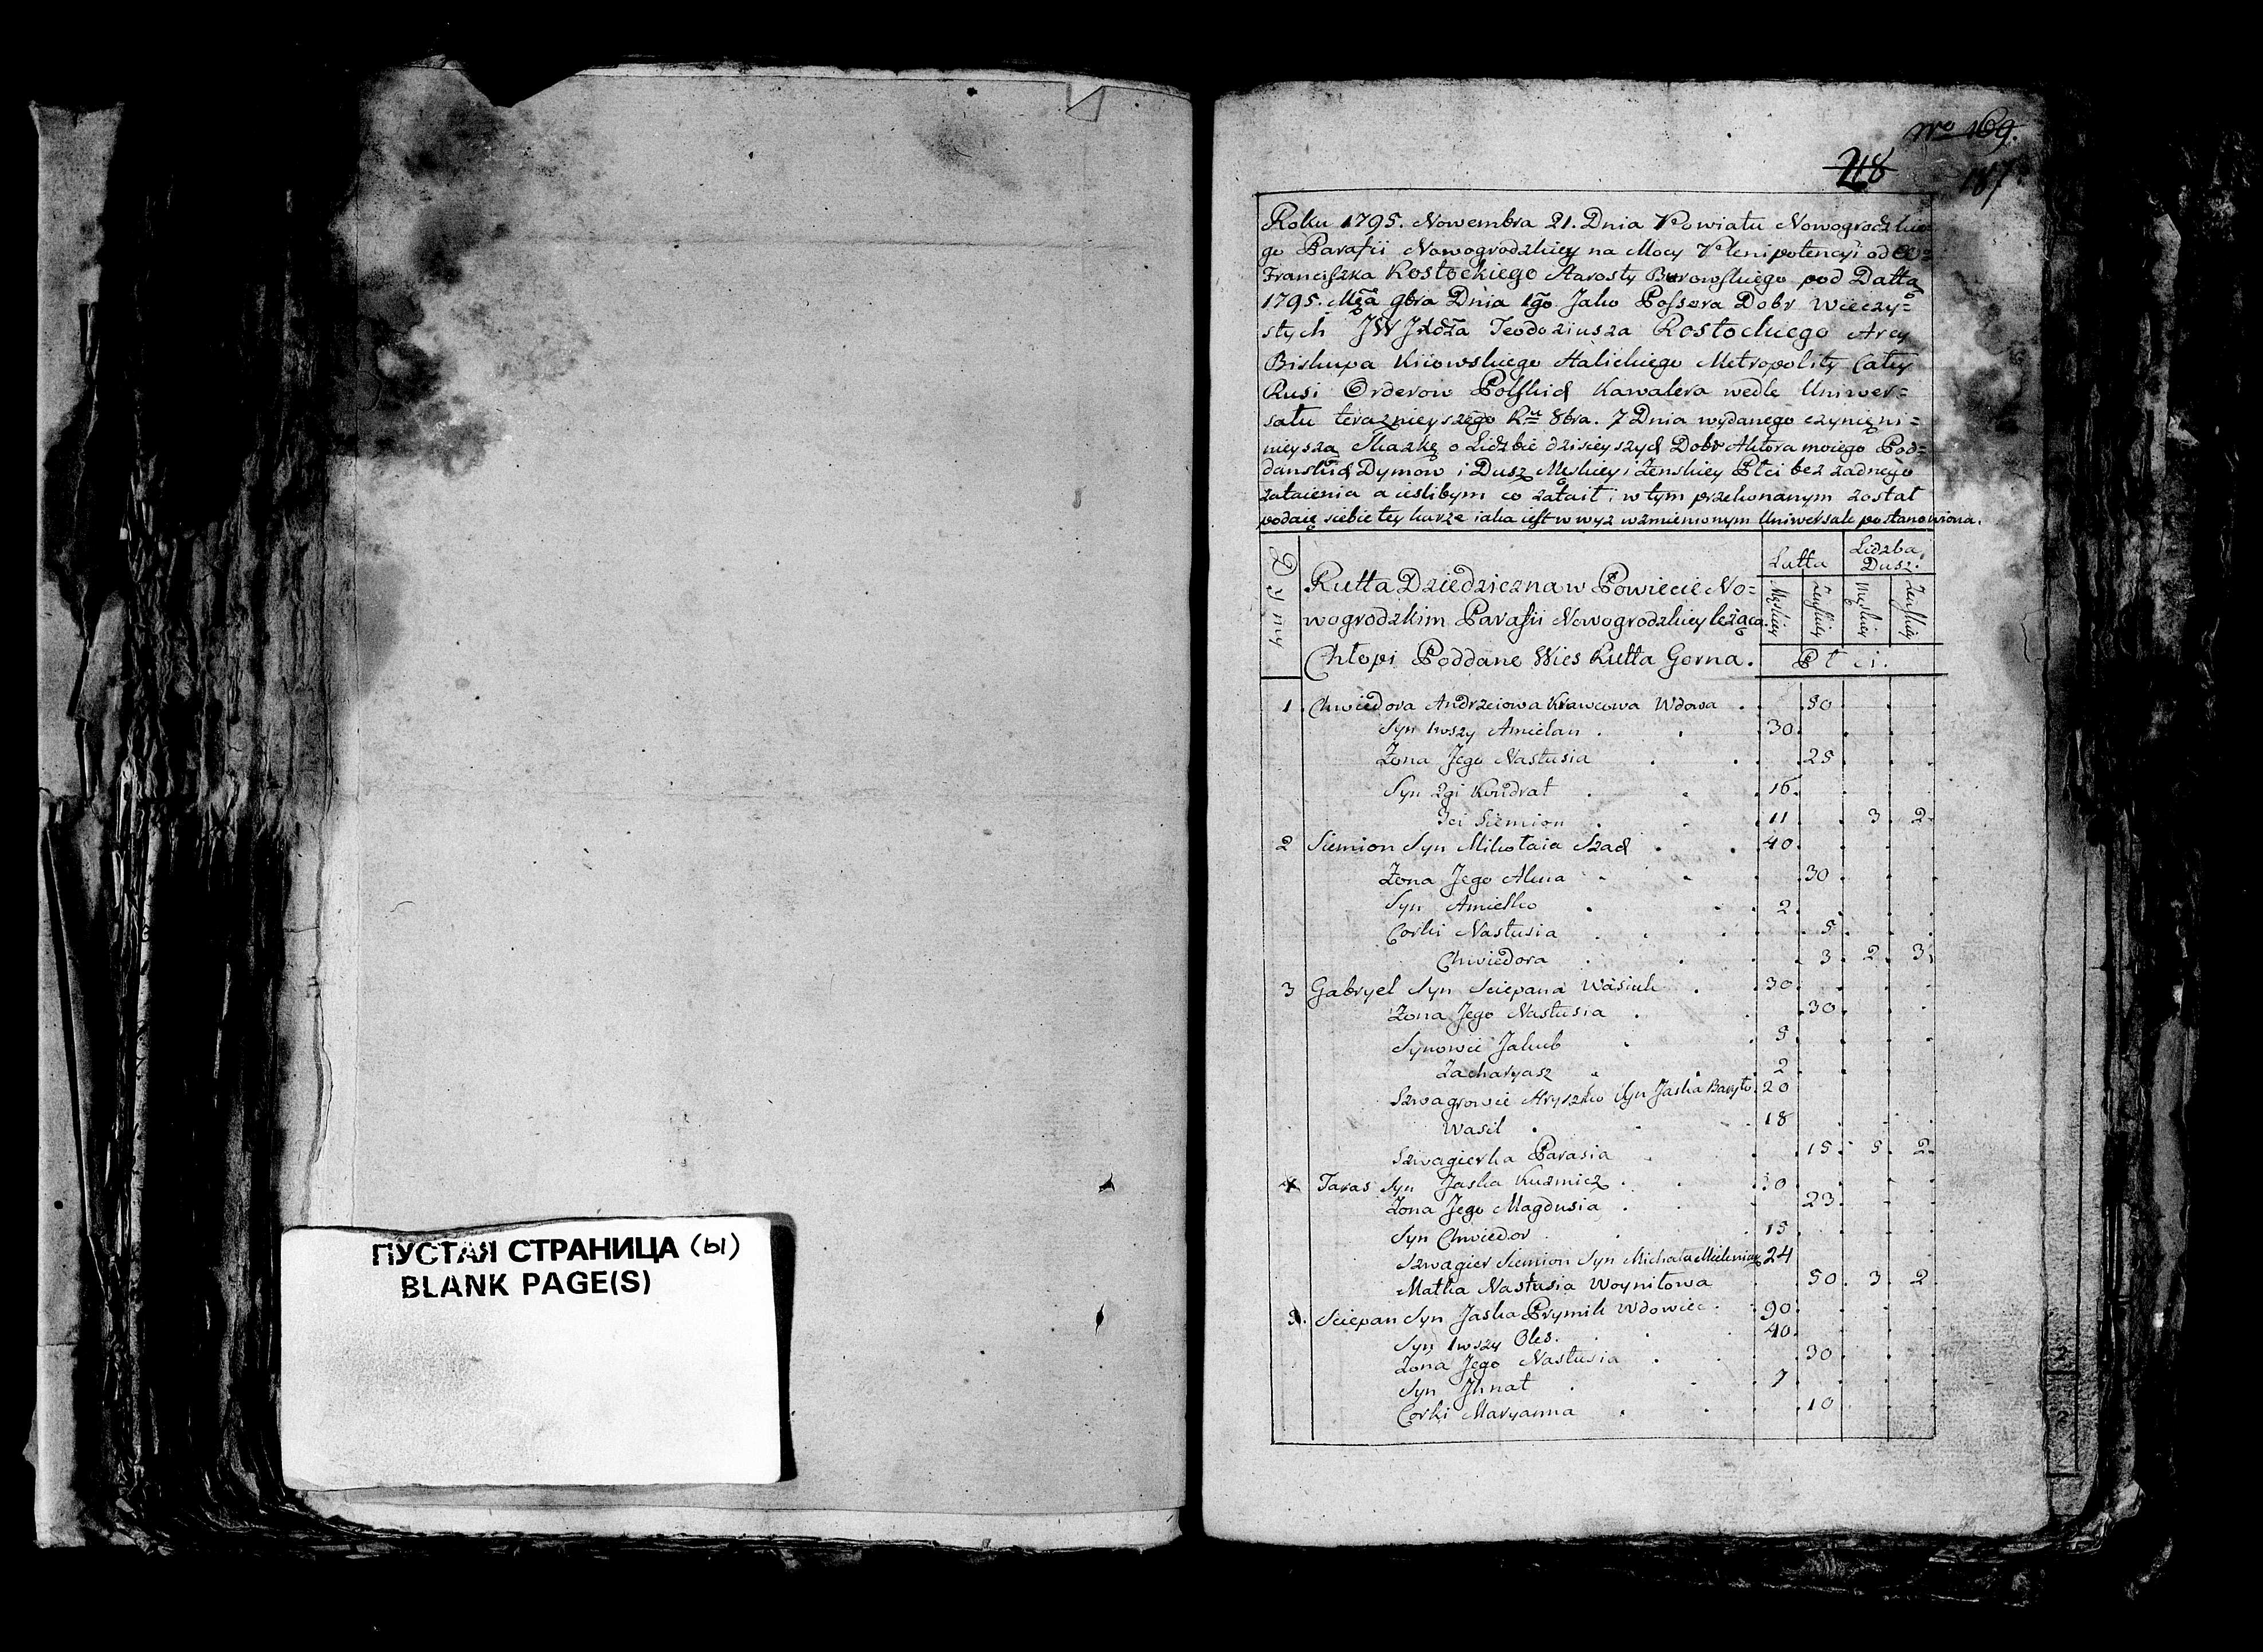 ПУСТАЯ СТРАНИЦА (ы)
BLANK PAGE(S)
No 169.
218
187
Roku 1795. Nowembra 21. Dnia Powiatu Nowogrodzkie=
go Parafii Nowogrodzkiey na Mocy Plenipotencyi od
Franciszka Rostockiego Starosty Burowskiego pod Dattą
1795. Mca 9bra Dnia 1go Jako Possora Dobr Wieczy=
stych JW Jdza Teodoziusza Rostockiego Arcy
Biskupa Kiiowskiego Halickiego Metropolity Całey
Rusi Orderow Polskich Kawalera wedle Uniwer=
sału terazniey szego Ru 8bra. 7 Dnia wydanego czynię ni=
nieyszą Skazkę o Lidzbie dzisieyszych Dobr Aktora moiego Pod=
danskich Dymow i Dusz Męskiey i Zenskiey Płci bez żadnego
zataienia a iesliby m co zataił, w tym przekonanym został
podaię siebie tey karze iaka iest w wyz wzmienionym Uniwersale postanowiona.
Dymy
Rutta Dziedziczna w Powiecie No=
wogrodzkim Parafii Nowogrodzkiey leżąca.
Chłopi Poddane Wies Rutta Gorna.
Latta
Lidzba Dusz.
Męskiey Zenskiey Męskiey Zenskiey
Płci.
1. Chwiedora Andrzeiowa Krawcowa Wdowa . 50
Syn 1wszy Amielan . 30.
Zona Jego Nastusia . 25
Syn 2gi Kondrat . 16.
3ci Siemion . 11 3. 2.
2 Siemion Syn Mikołaia Szach . 40.
Zona Jego . 30.
Syn Amielko . 2.
Corki Nastusia . 5.
Chwiedora . 3. 2. 3.
3 Gabryel Syn Sciepana Wasiuk . 30.
Zona Jego Nastusia . 30.
Synowie Jakub . 5.
Zacharyasz . 2.
Szwagrowie Hryszko Syn Jaska Baryło. 20
Wasil . 18
Szwagierka Parasia . 15. 5. 2.
4 Taras Syn Jaska Kuzmicz . 30.
Zona Jego Magdusia . 23.
Syn Chwiedor . 15
Szwagier Siemion Syn Michała 24
Matka Nastusia Woyniłowa . 50. 3. 2.
5. Sciepan Syn Jaska Prymik Wdowiec . 90.
Syn 1wszy Oles. 40.
Zona Jego Nastusia . 30.
Syn Jhnat . 7.
Corki Maryanna . 10